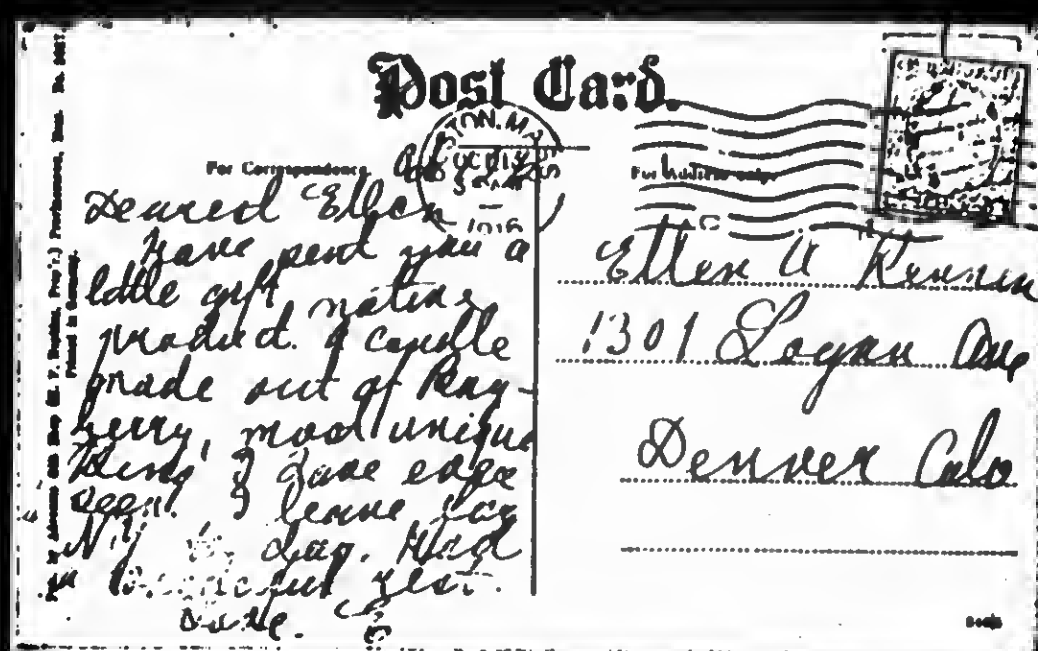 Post Card.
For Correspondence
Oct
BOSTON, MASS
OCT 13
1916
Dearest Ellen
Have sent you a
little gift native
product. A candle
made out of Bay-
berry, most unique
thing I have ever
seen. I leave for
N.Y. day. Had
a rest.
Love.
Ellen A
1301 Logan Ave
Denver Colo
Printed in Germany.